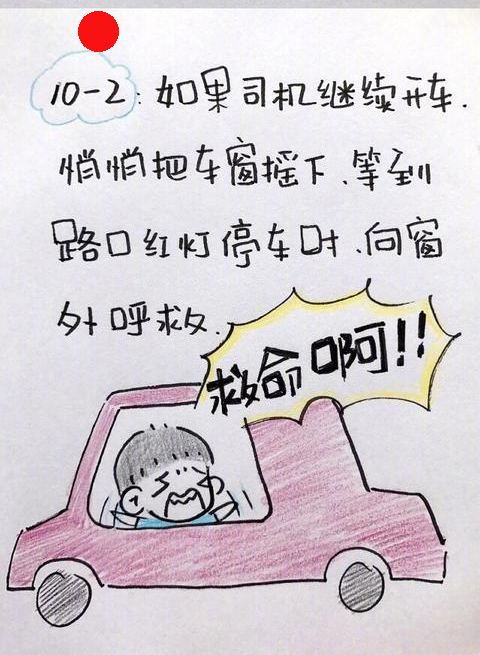 10-2:如果司机继续开车.
悄悄把车窗摇下.等到
路口红灯停车时.向窗
外呼救.
救命啊!!